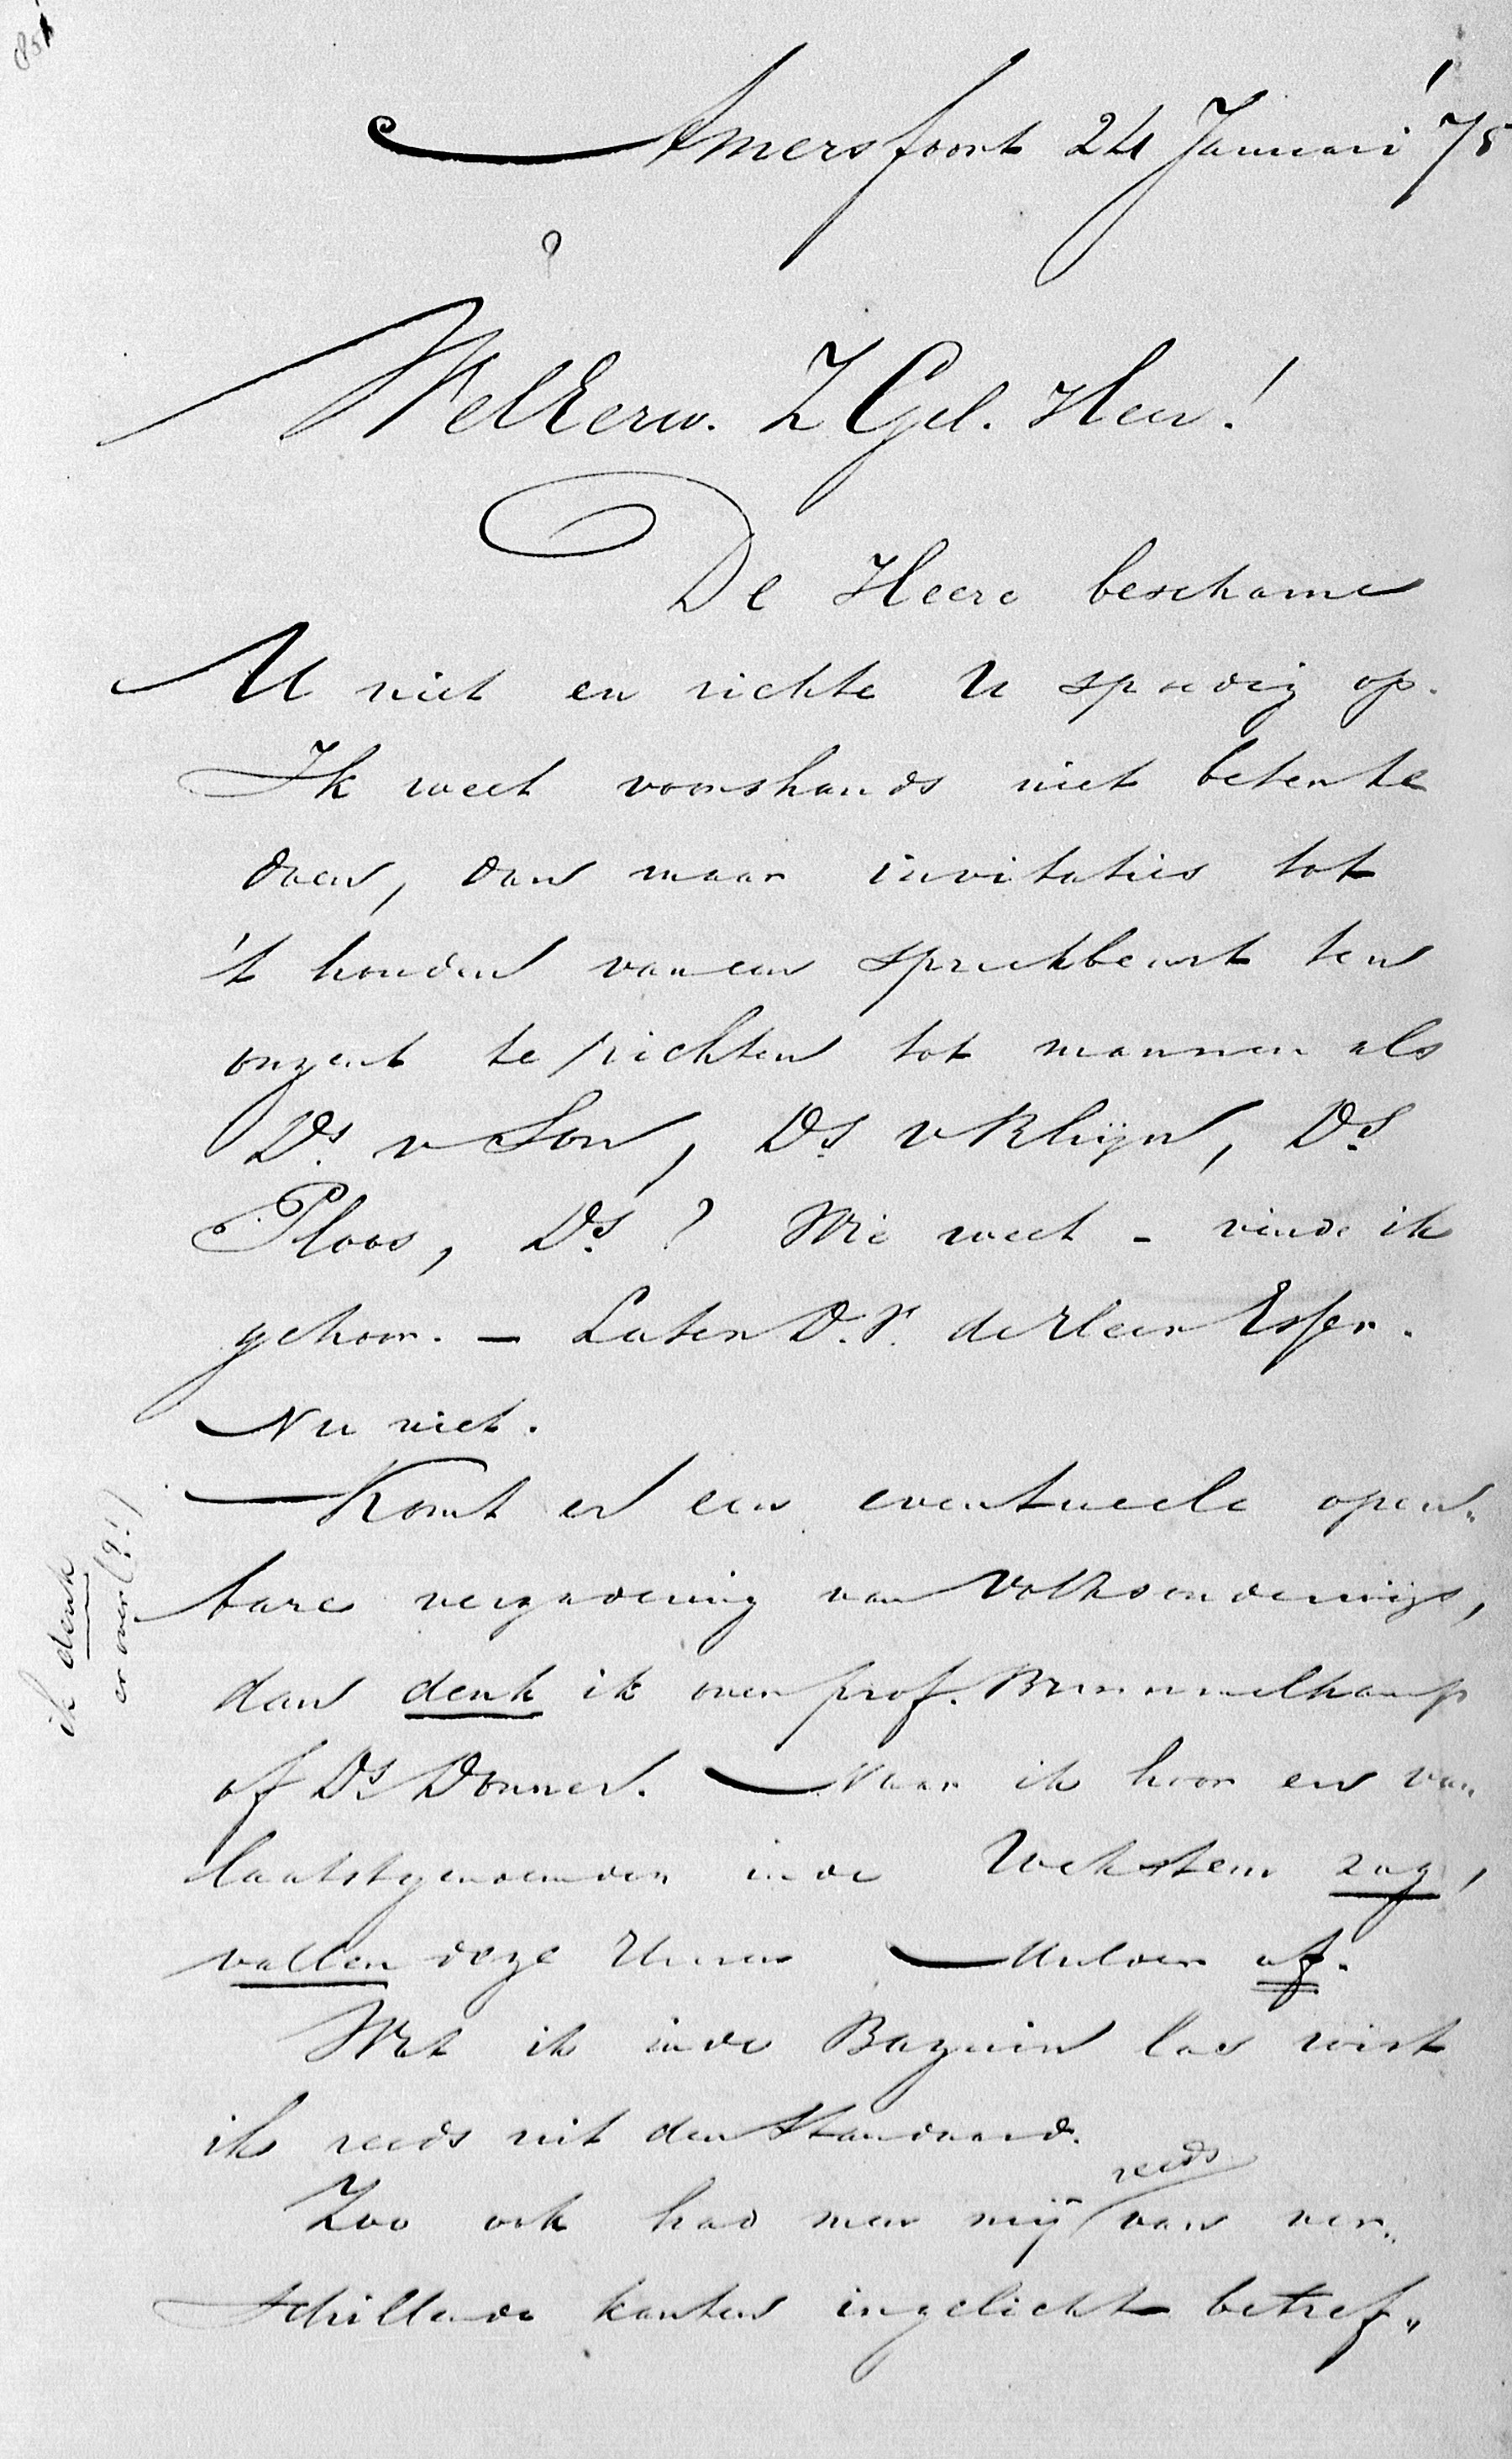 851
Amersfoort 24 Januari '75
WelEerw. ZGel. Heer!
De Heere beschame
U niet en richte U spoedig op.
Ik weet voorshands niet beter te
doen, dan maar invitaties tot
't houden van een spreekbeurt ten
onzent te richten tot mannen als
Ds. v Son, Ds. v Rhijn, Ds.
Ploos, Ds. ? Wie weet - vinde ik
gehoor. — Later D.V. de Heer Esser.
Nu niet.
Komt er een eventueele open-
bare vergadering van Volksonderwijs,
dan denk ik over prof. Brummelkamp
of Ds Donner. Naar ik hoor en van
laatstgenoemden in de Wekstem zag,
vallen deze Mulder af.
Wat ik in de Bazuin las wist
ik reeds uit den Standaard.
Zoo ook had men mij reeds van ver-
schillende kanten ingelicht betref-
ik denk
er over (?!)